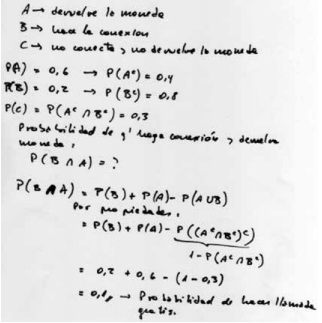 A → devuelve la moneda
B → hace la conexion
C → no conecta y no devuelve la moneda
P(A) = 0,6 → P(Aᶜ) = 0,4
P(B) = 0,2 → P(Bᶜ) = 0,8
P(C) = P(Aᶜ ∩ Bᶜ) = 0,3
Probabilidad de q' haga conexión y devuelva
moneda,
P(B ∩ A) = ?
P(B ∩ A) = P(B) + P(A) - P(A∪B)
Por propiedades,
= P(B) + P(A) - P((Aᶜ∩Bᶜ)ᶜ)
1 - P(Aᶜ∩Bᶜ)
= 0,2 + 0,6 - (1-0,3)
= 0,1 → Probabilidad de hacer llamada
gratis.